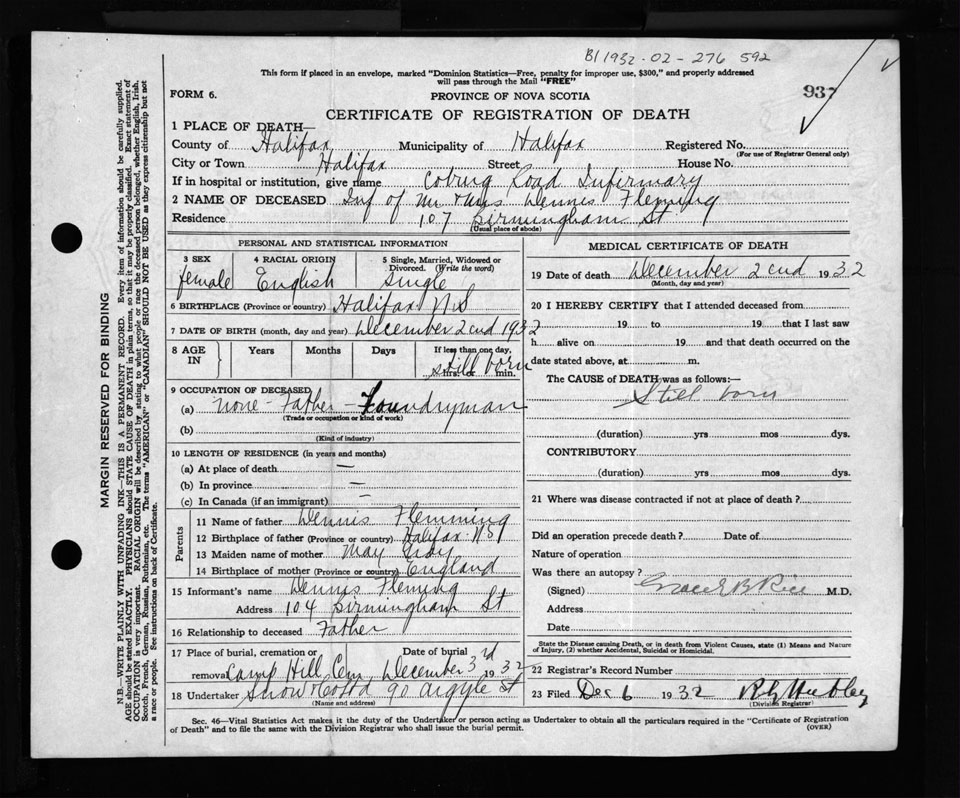 B1 1932-02-276 592
This form if placed in an envelope, marked "Dominion Statistics—Free, penalty for improper use, $300," and properly addressed
will pass through the Mail "FREE"
FORM 6.
PROVINCE OF NOVA SCOTIA
937
CERTIFICATE OF REGISTRATION OF DEATH
1 PLACE OF DEATH—
County of Halifax Municipality of Halifax Registered No.
(For use of Registrar General only)
City or Town Halifax Street House No.
If in hospital or institution, give name Coburg Road Infirmary
2 NAME OF DECEASED Inf of Mr & Mrs Dennis Fleming
Residence 107 Birmingham St
(Usual place of abode)
PERSONAL AND STATISTICAL INFORMATION
3 SEX 4 RACIAL ORIGIN 5 Single, Married, Widowed or
Divorced. (Write the word)
female English Single
6 BIRTHPLACE (Province or country) Halifax N.S
7 DATE OF BIRTH (month, day and year) December 2cnd 1932
8 AGE IN Years Months Days If less than one day,
still born
hrs. or min.
9 OCCUPATION OF DECEASED
(a) None - Father - Foundryman
(Trade or occupation or kind of work)
(b)
(Kind of industry)
10 LENGTH OF RESIDENCE (in years and months)
(a) At place of death —
(b) In province —
(c) In Canada (if an immigrant) —
Parents
11 Name of father Dennis Flemming
12 Birthplace of father (Province or country) Halifax N.S
13 Maiden name of mother May Gray
14 Birthplace of mother (Province or country) England
15 Informant's name Dennis Fleming
Address 104 Birmingham St
16 Relationship to deceased Father
17 Place of burial, cremation or Date of burial
removal Camp Hill Cem December 3rd 1932
18 Undertaker Snow & Co Ltd 90 Argyle St
(Name and address)
MEDICAL CERTIFICATE OF DEATH
19 Date of death December 2cnd 1932
(Month, day and year)
20 I HEREBY CERTIFY that I attended deceased from
19 to 19 that I last saw
h alive on 19 and that death occurred on the
date stated above, at m.
The CAUSE of DEATH was as follows:—
Still born
(duration) yrs mos dys.
CONTRIBUTORY
(duration) yrs mos dys.
21 Where was disease contracted if not at place of death?
Did an operation precede death? Date of
Nature of operation
Was there an autopsy?
(Signed) Grace B Rice M.D.
Address
Date
State the Disease causing Death, or in death from Violent Causes, state (1) Means and Nature
of Injury, (2) whether Accidental, Suicidal or Homicidal.
22 Registrar's Record Number
23 Filed Dec 6 1932 Hubley
(Division Registrar)
Sec. 46—Vital Statistics Act makes it the duty of the Undertaker or person acting as Undertaker to obtain all the particulars required in the "Certificate of Registration
of Death" and to file the same with the Division Registrar who shall issue the burial permit.
(OVER)
MARGIN RESERVED FOR BINDING
N.B.—WRITE PLAINLY WITH UNFADING INK—THIS IS A PERMANENT RECORD. Every item of information should be carefully supplied.
AGE should be stated EXACTLY. PHYSICIANS should STATE CAUSE OF DEATH in plain terms, so that it may be properly classified. Exact statement of
OCCUPATION is very important. RACIAL ORIGIN will be described by stating to what people or race the deceased person belonged, whether English, Irish,
Scotch, French, German, Russian, Ruthenian, etc. The terms "AMERICAN" or "CANADIAN" SHOULD NOT BE USED as they express citizenship but not
a race or people. See instructions on back of Certificate.